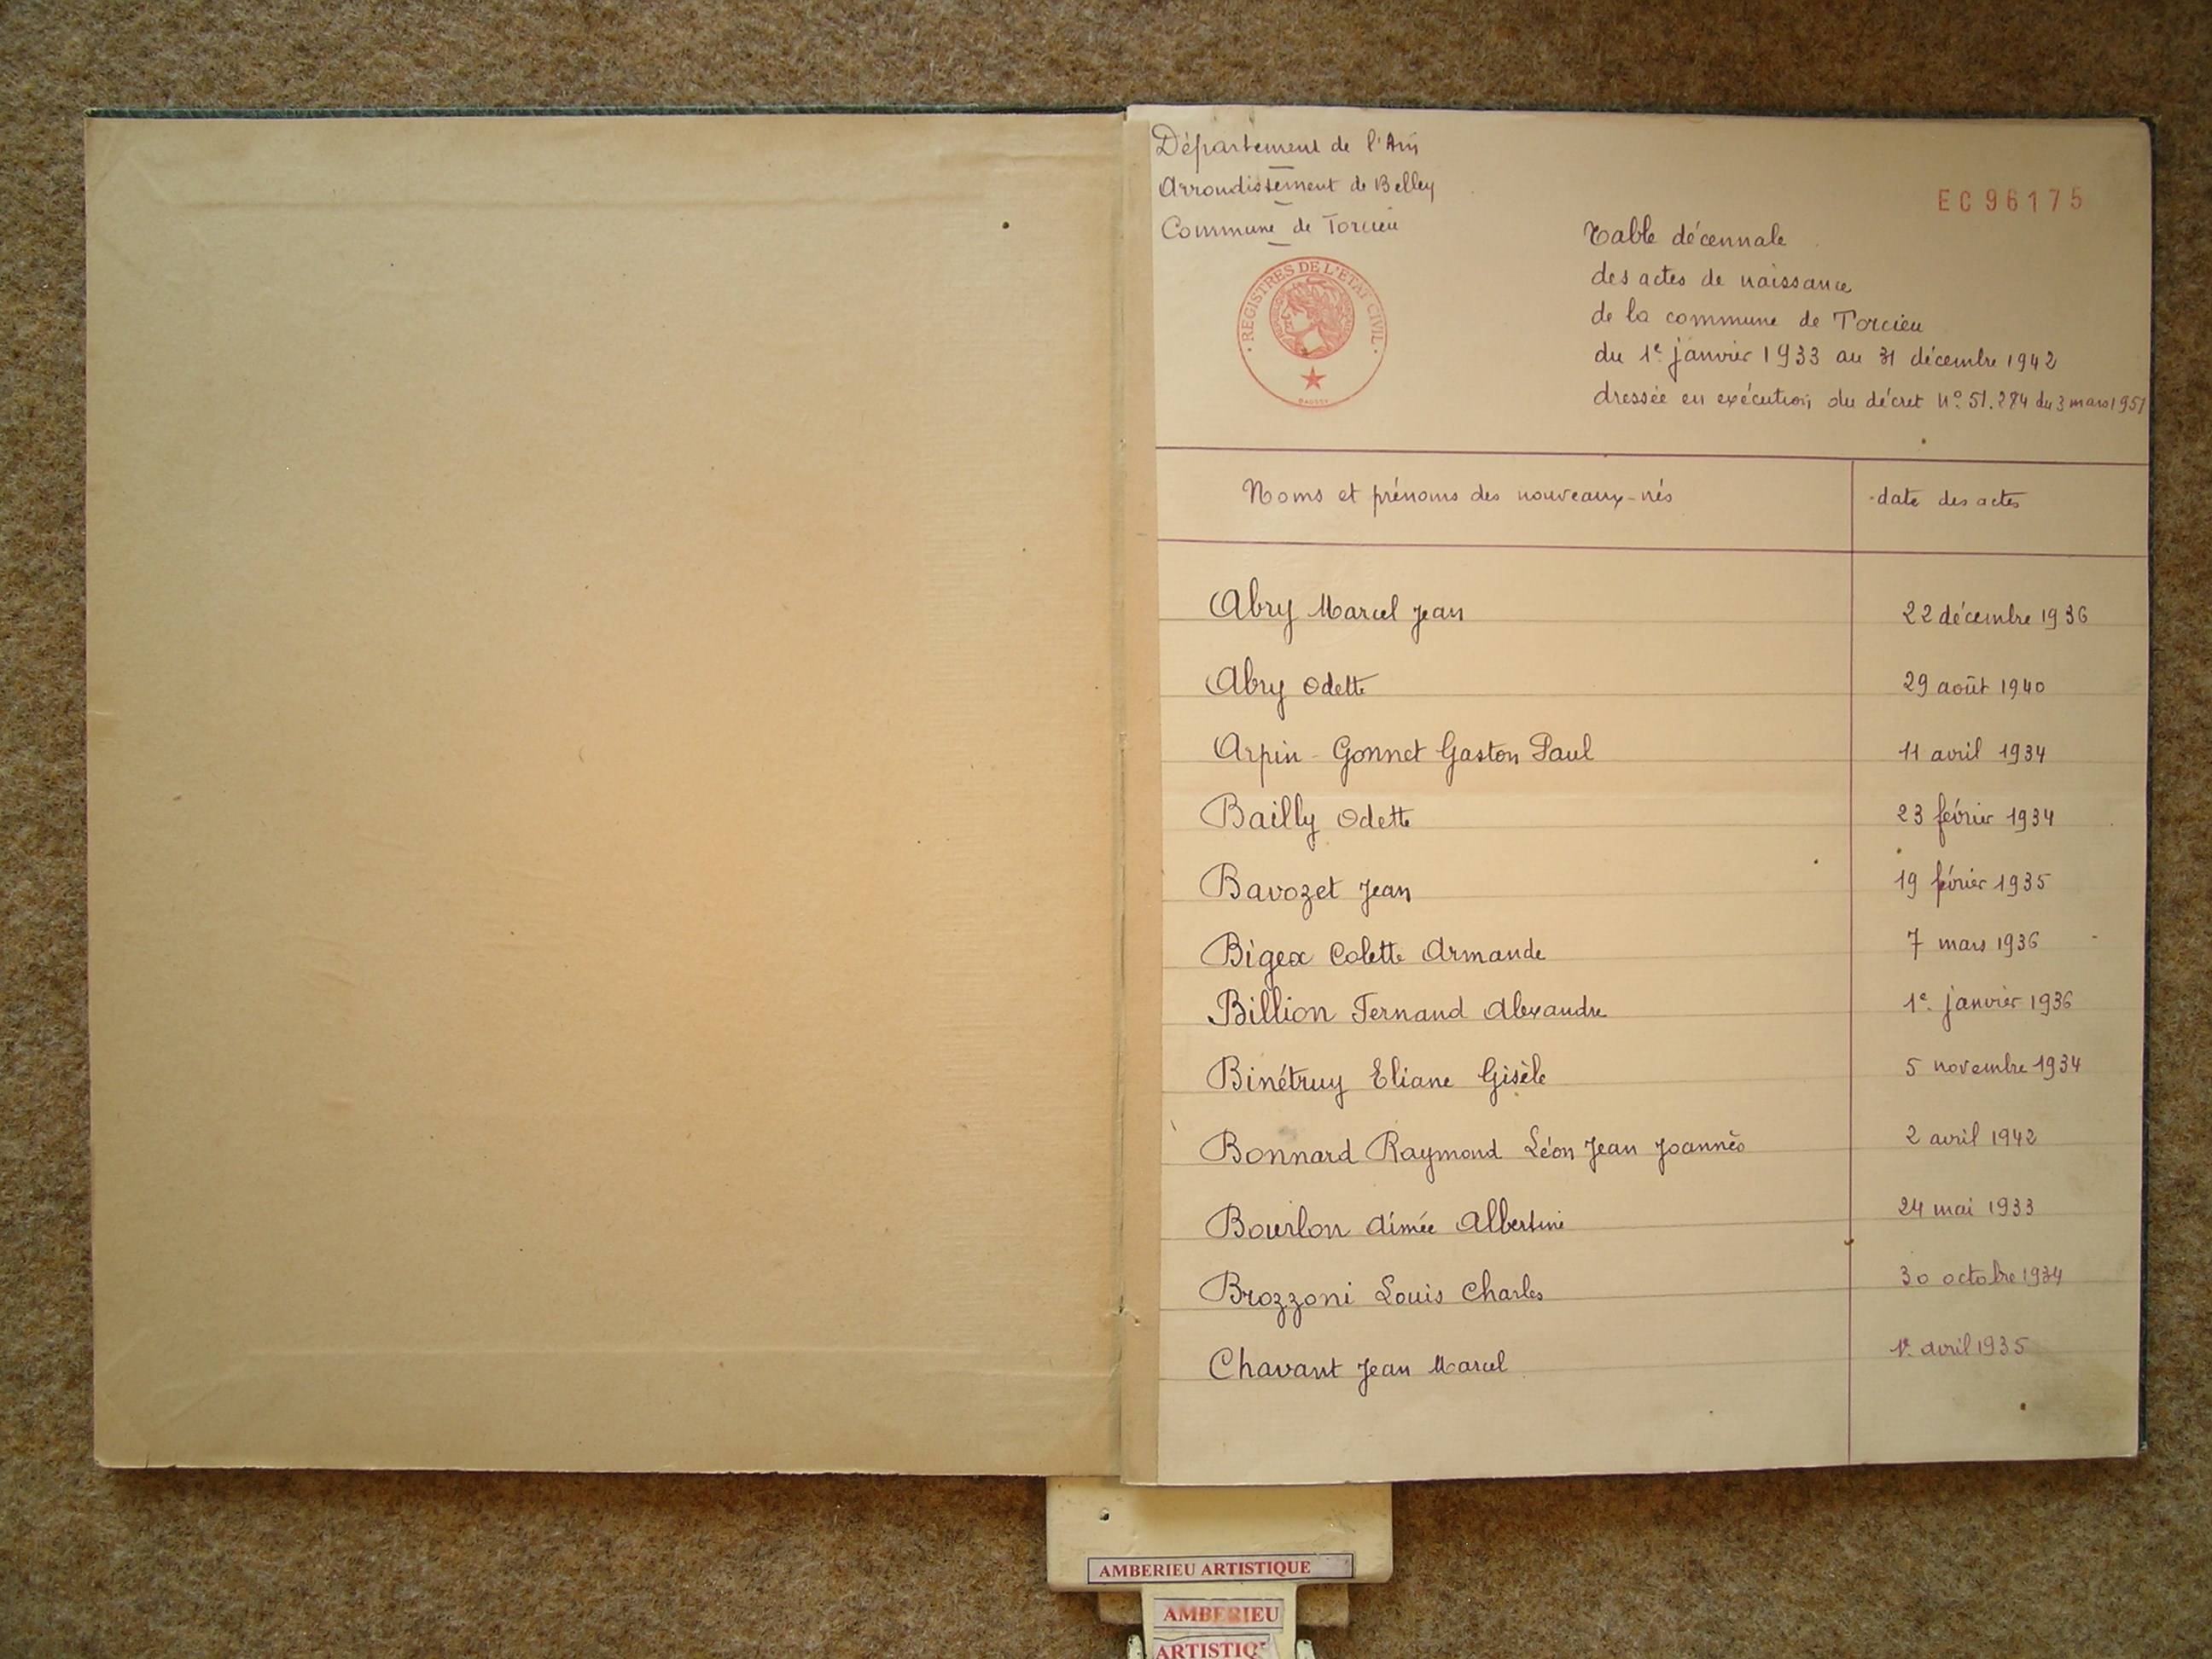 Département de l'Ain
Arrondissement de Belley
Commune de Torcieu
EC 96175
REGISTRES DE L'ETAT CIVIL
Table décennale
des actes de naissance
de la commune de Torcieu
du 1e janvier 1933 au 31 décembre 1942
dressée en exécution du décret n° 51.284 du 3 mars 1951
Noms et prénoms des nouveaux-nés date des actes
Abry Marcel Jean 22 décembre 1936
Abry Odette 29 août 1940
Arpin-Gonnet Gaston Paul 11 avril 1934
Bailly Odette 23 février 1934
Bavozet Jean 19 février 1935
Bigex Colette Armande 7 mars 1936
Billion Fernand Alexandre 1e janvier 1936
Binétruy Eliane Gisèle 5 novembre 1934
Bonnard Raymond Léon Jean Joannès 2 avril 1942
Bourlon Aimée Albertine 24 mai 1933
Brozzoni Louis Charles 30 octobre 1934
Chavant Jean Marcel 1e avril 1935
AMBERIEU ARTISTIQUE
AMBERIEU
ARTISTIQ